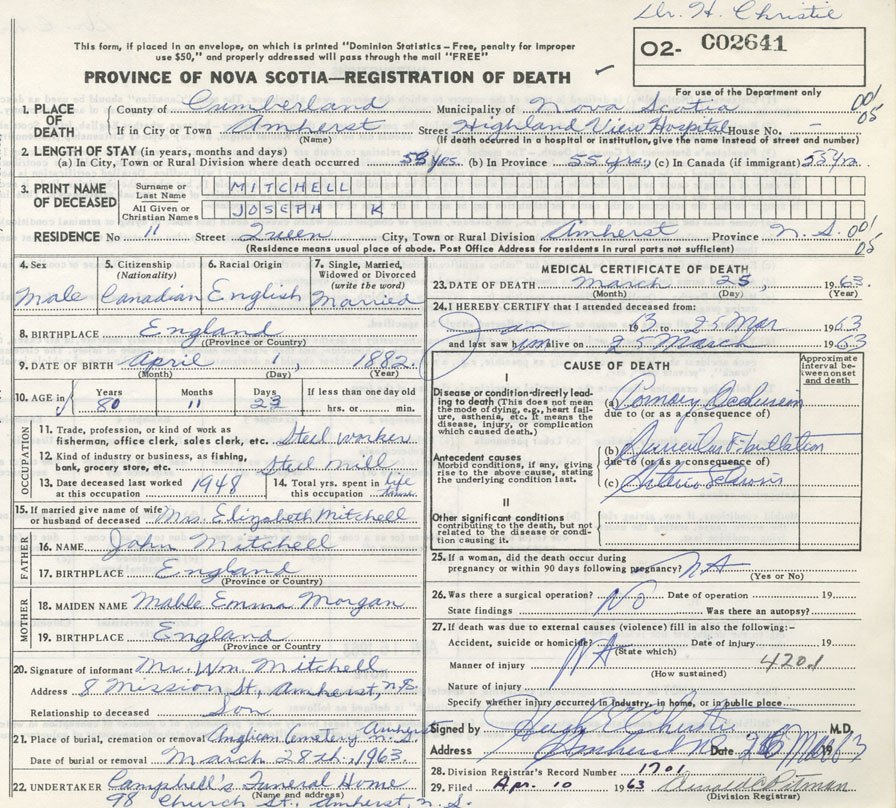 Dr. H. Christie
This form, if placed in an envelope, on which is printed "Dominion Statistics – Free, penalty for improper
use $50," and properly addressed will pass through the mail "FREE"
O2- C02641
PROVINCE OF NOVA SCOTIA—REGISTRATION OF DEATH
For use of the Department only
1. PLACE OF DEATH County of Cumberland Municipality of Nova Scotia 001
If in City or Town Amherst Street Highland View Hospital House No. – 05
(Name) (If death occurred in a hospital or institution, give the name instead of street and number)
2. LENGTH OF STAY (in years, months and days)
(a) In City, Town or Rural Division where death occurred 53 yrs. (b) In Province 55 yrs.; (c) In Canada (if immigrant) 55 yrs.
3. PRINT NAME OF DECEASED Surname or Last Name MITCHELL
All Given or Christian Names JOSEPH K
RESIDENCE No 11 Street Queen City, Town or Rural Division Amherst Province N.S. 001
(Residence means usual place of abode. Post Office Address for residents in rural parts not sufficient) 05
4. Sex Male
5. Citizenship (Nationality) Canadian
6. Racial Origin English
7. Single, Married, Widowed or Divorced (write the word) Married
8. BIRTHPLACE England
(Province or Country)
9. DATE OF BIRTH April 1, 1882.
(Month) (Day) (Year)
10. AGE in Years 80 Months 11 Days 23 If less than one day old
hrs. or min.
OCCUPATION
11. Trade, profession, or kind of work as
fisherman, office clerk, sales clerk, etc. Steel worker
12. Kind of industry or business, as fishing,
bank, grocery store, etc. Steel mill
13. Date deceased last worked
at this occupation 1948
14. Total yrs. spent in
this occupation life time
15. If married give name of wife
or husband of deceased Mrs. Elizabeth Mitchell
FATHER
16. NAME John Mitchell
17. BIRTHPLACE England
(Province or Country)
MOTHER
18. MAIDEN NAME Mable Emma Morgan
19. BIRTHPLACE England
(Province or Country)
20. Signature of informant Mr. Wm. Mitchell
Address 8 Mission St., Amherst, N.S.
Relationship to deceased Son
21. Place of burial, cremation or removal Anglican Cemetery Amherst N.S.
Date of burial or removal March 28th, 1963
22. UNDERTAKER Campbell's Funeral Home
(Name and address)
98 Church St., Amherst, N.S.
MEDICAL CERTIFICATE OF DEATH
23. DATE OF DEATH March 25, 1963.
(Month) (Day) (Year)
24. I HEREBY CERTIFY that I attended deceased from:
Jan to 25 Mar 1963
and last saw him alive on 25 March 1963
CAUSE OF DEATH
Approximate interval between onset and death
I
Disease or condition directly leading to death (This does not mean the mode of dying, e.g., heart failure, asthenia, etc. It means the disease, injury, or complication which caused death.)
(a) Coronary Occlusion
due to (or as a consequence of)
Antecedent causes
Morbid conditions, if any, giving rise to the above cause, stating the underlying condition last.
(b) Auricular Fibrillation
due to (or as a consequence of)
(c)
II
Other significant conditions
contributing to the death, but not related to the disease or condition causing it.
25. If a woman, did the death occur during
pregnancy or within 90 days following pregnancy? NA
(Yes or No)
26. Was there a surgical operation? No Date of operation 19
State findings Was there an autopsy?
27. If death was due to external causes (violence) fill in also the following:-
Accident, suicide or homicide? NA Date of injury 19
(State which)
Manner of injury 420.1
(How sustained)
Nature of injury
Specify whether injury occurred in industry, in home, or in public place
Signed by Hugh E Christie M.D.
Address Amherst NS Date 26 Mar 1963
28. Division Registrar's Record Number 1701
29. Filed Apr. 10 1963
(Division Registrar)